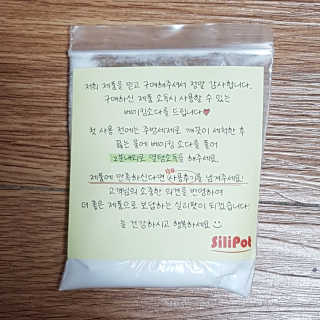 저희 제품을 믿고 구매해주셔서 정말 감사합니다.
구매하신 제품 소독시 사용할 수 있는
베이킹소다를 드립니다♥
첫 사용 전에는 주방세제로 깨끗이 세척한 후
끓는 물에 베이킹 소다를 풀어
2분내외로 열탕소독을 해주세요.
제품에 만족하신다면 사용후기를 남겨주세요!
고객님의 소중한 의견을 반영하여
더 좋은 제품으로 보답하는 실리팟이 되겠습니다.
늘 건강하시고 행복하세요
SiliPot